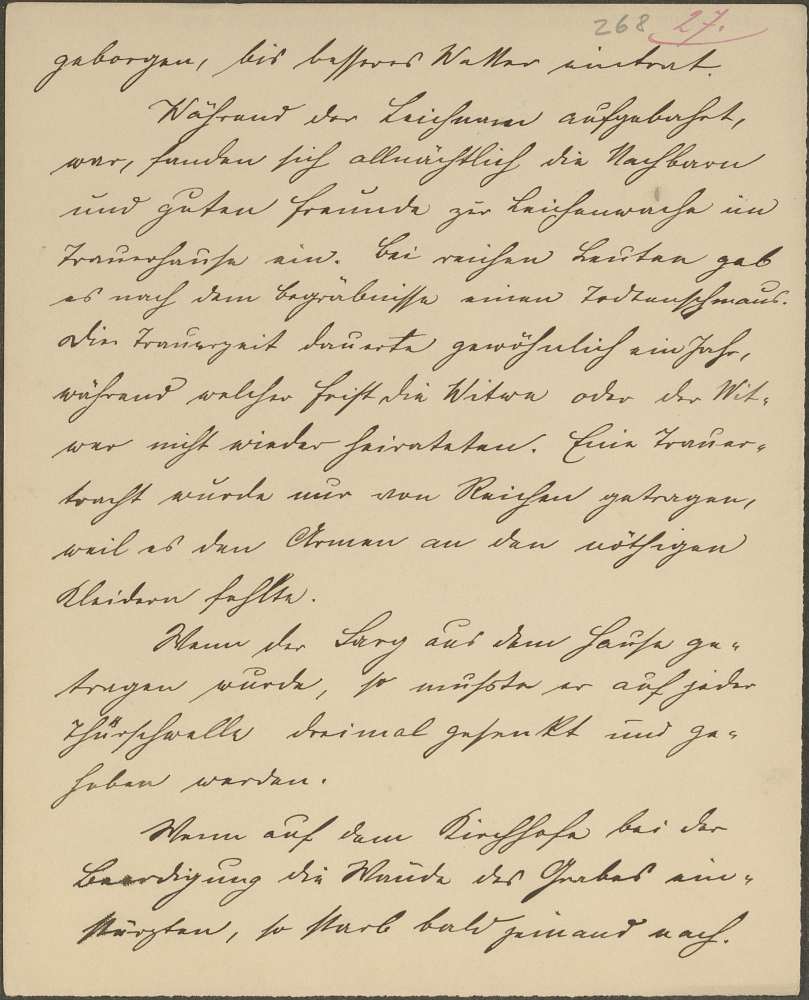 268 27.
geborgen, bis besseres Wetter eintrat.
Während der Leichnam aufgebahrt,
war, fanden sich allnächtlich die Nachbarn
und guten Freunde zur Leichenwache im
Trauerhause ein. Bei reichen Leuten gab
es nach dem Begräbnisse einen Todtenschmaus.
Die Trauerzeit dauerte gewöhnlich ein Jahr,
während welcher Frist die Witwe oder der Wit-
wer nicht wieder heirateten. Eine Trauer-
tracht wurde nur von Reichen getragen,
weil es den Armen an den nöthigen
Kleidern fehlte.
Wenn der Sarg aus dem Hause ge-
tragen wurde, so mußte er auf jeder
Thürschwelle dreimal gesenkt und ge-
hoben werden.
Wenn auf dem Kirchhofe bei der
Beerdigung die Wände des Grabes ein-
stürzten, so starb bald jemand nach.